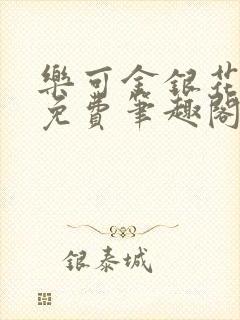 樂可金銀花
免費筆趣閣
銀泰城